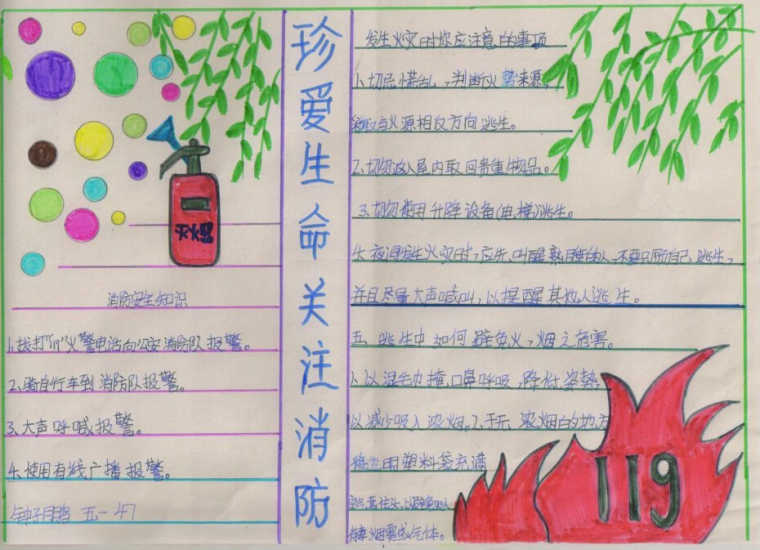 灭火器
消防安全知识
1.拨打"119"火警电话向公安消防队报警。
2.骑自行车到消防队报警。
3.大声呼喊报警。
4.使用有线广播报警。
五一 47
珍爱生命关注消防
发生火灾时你应注意的事项
1.切忌慌乱,判断火势来源,
与火源相反方向逃生。
2.切勿返入屋内取回贵重物品。
3.切勿使用升降设备(电梯)逃生。
4.夜间发生火灾时,应先叫醒熟睡的人,不要只顾自己逃生,
并且尽量大声喊叫,以提醒其他人逃生。
五、逃生中如何避免火,烟之危害。
1.以湿毛巾掩口鼻呼吸,降低姿势,
以减少吸入浓烟。2.于无浓烟的地方
用塑料袋充满
气体。
119